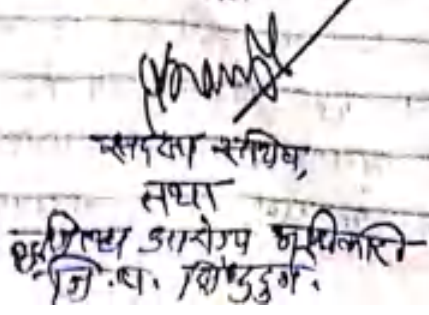 सदस्य सचिव,
तथा
जिल्हा आरोग्य अधिकारी
जि.प. सिंधुदुर्ग.